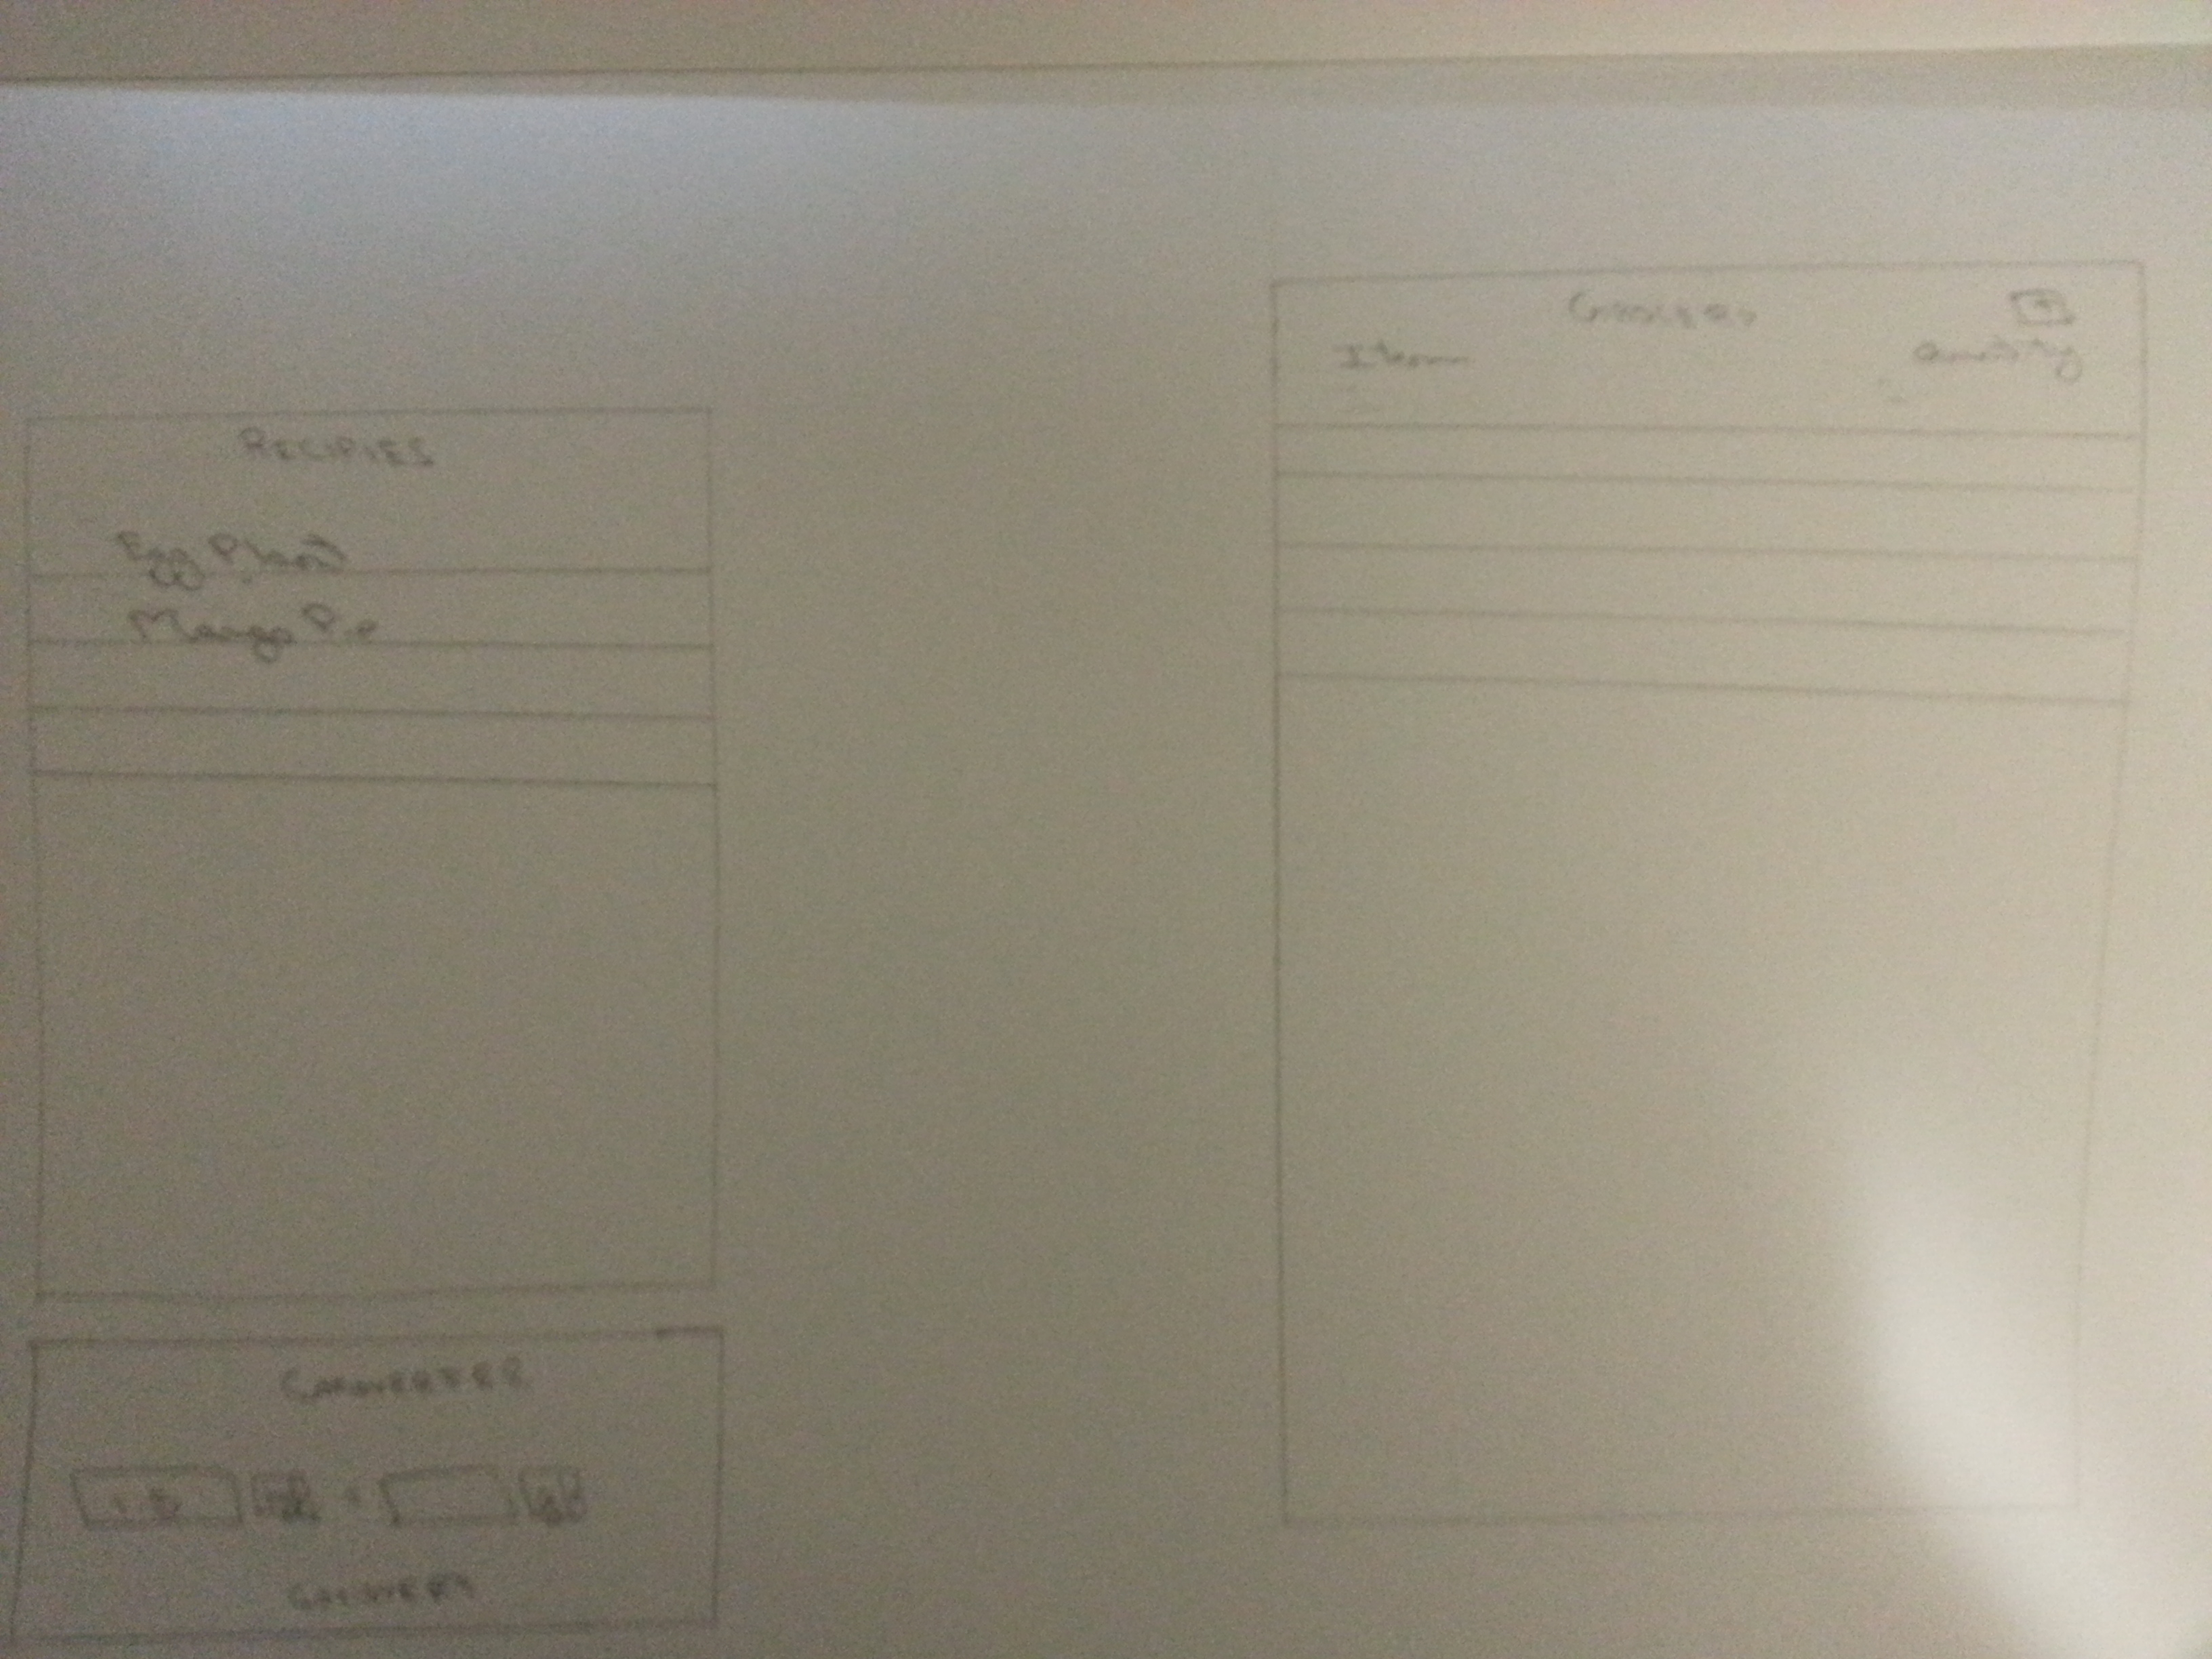 RECIPIES
Egg Plant
Mango Pie
CONVERTER
CONVERT
Item
Quantity